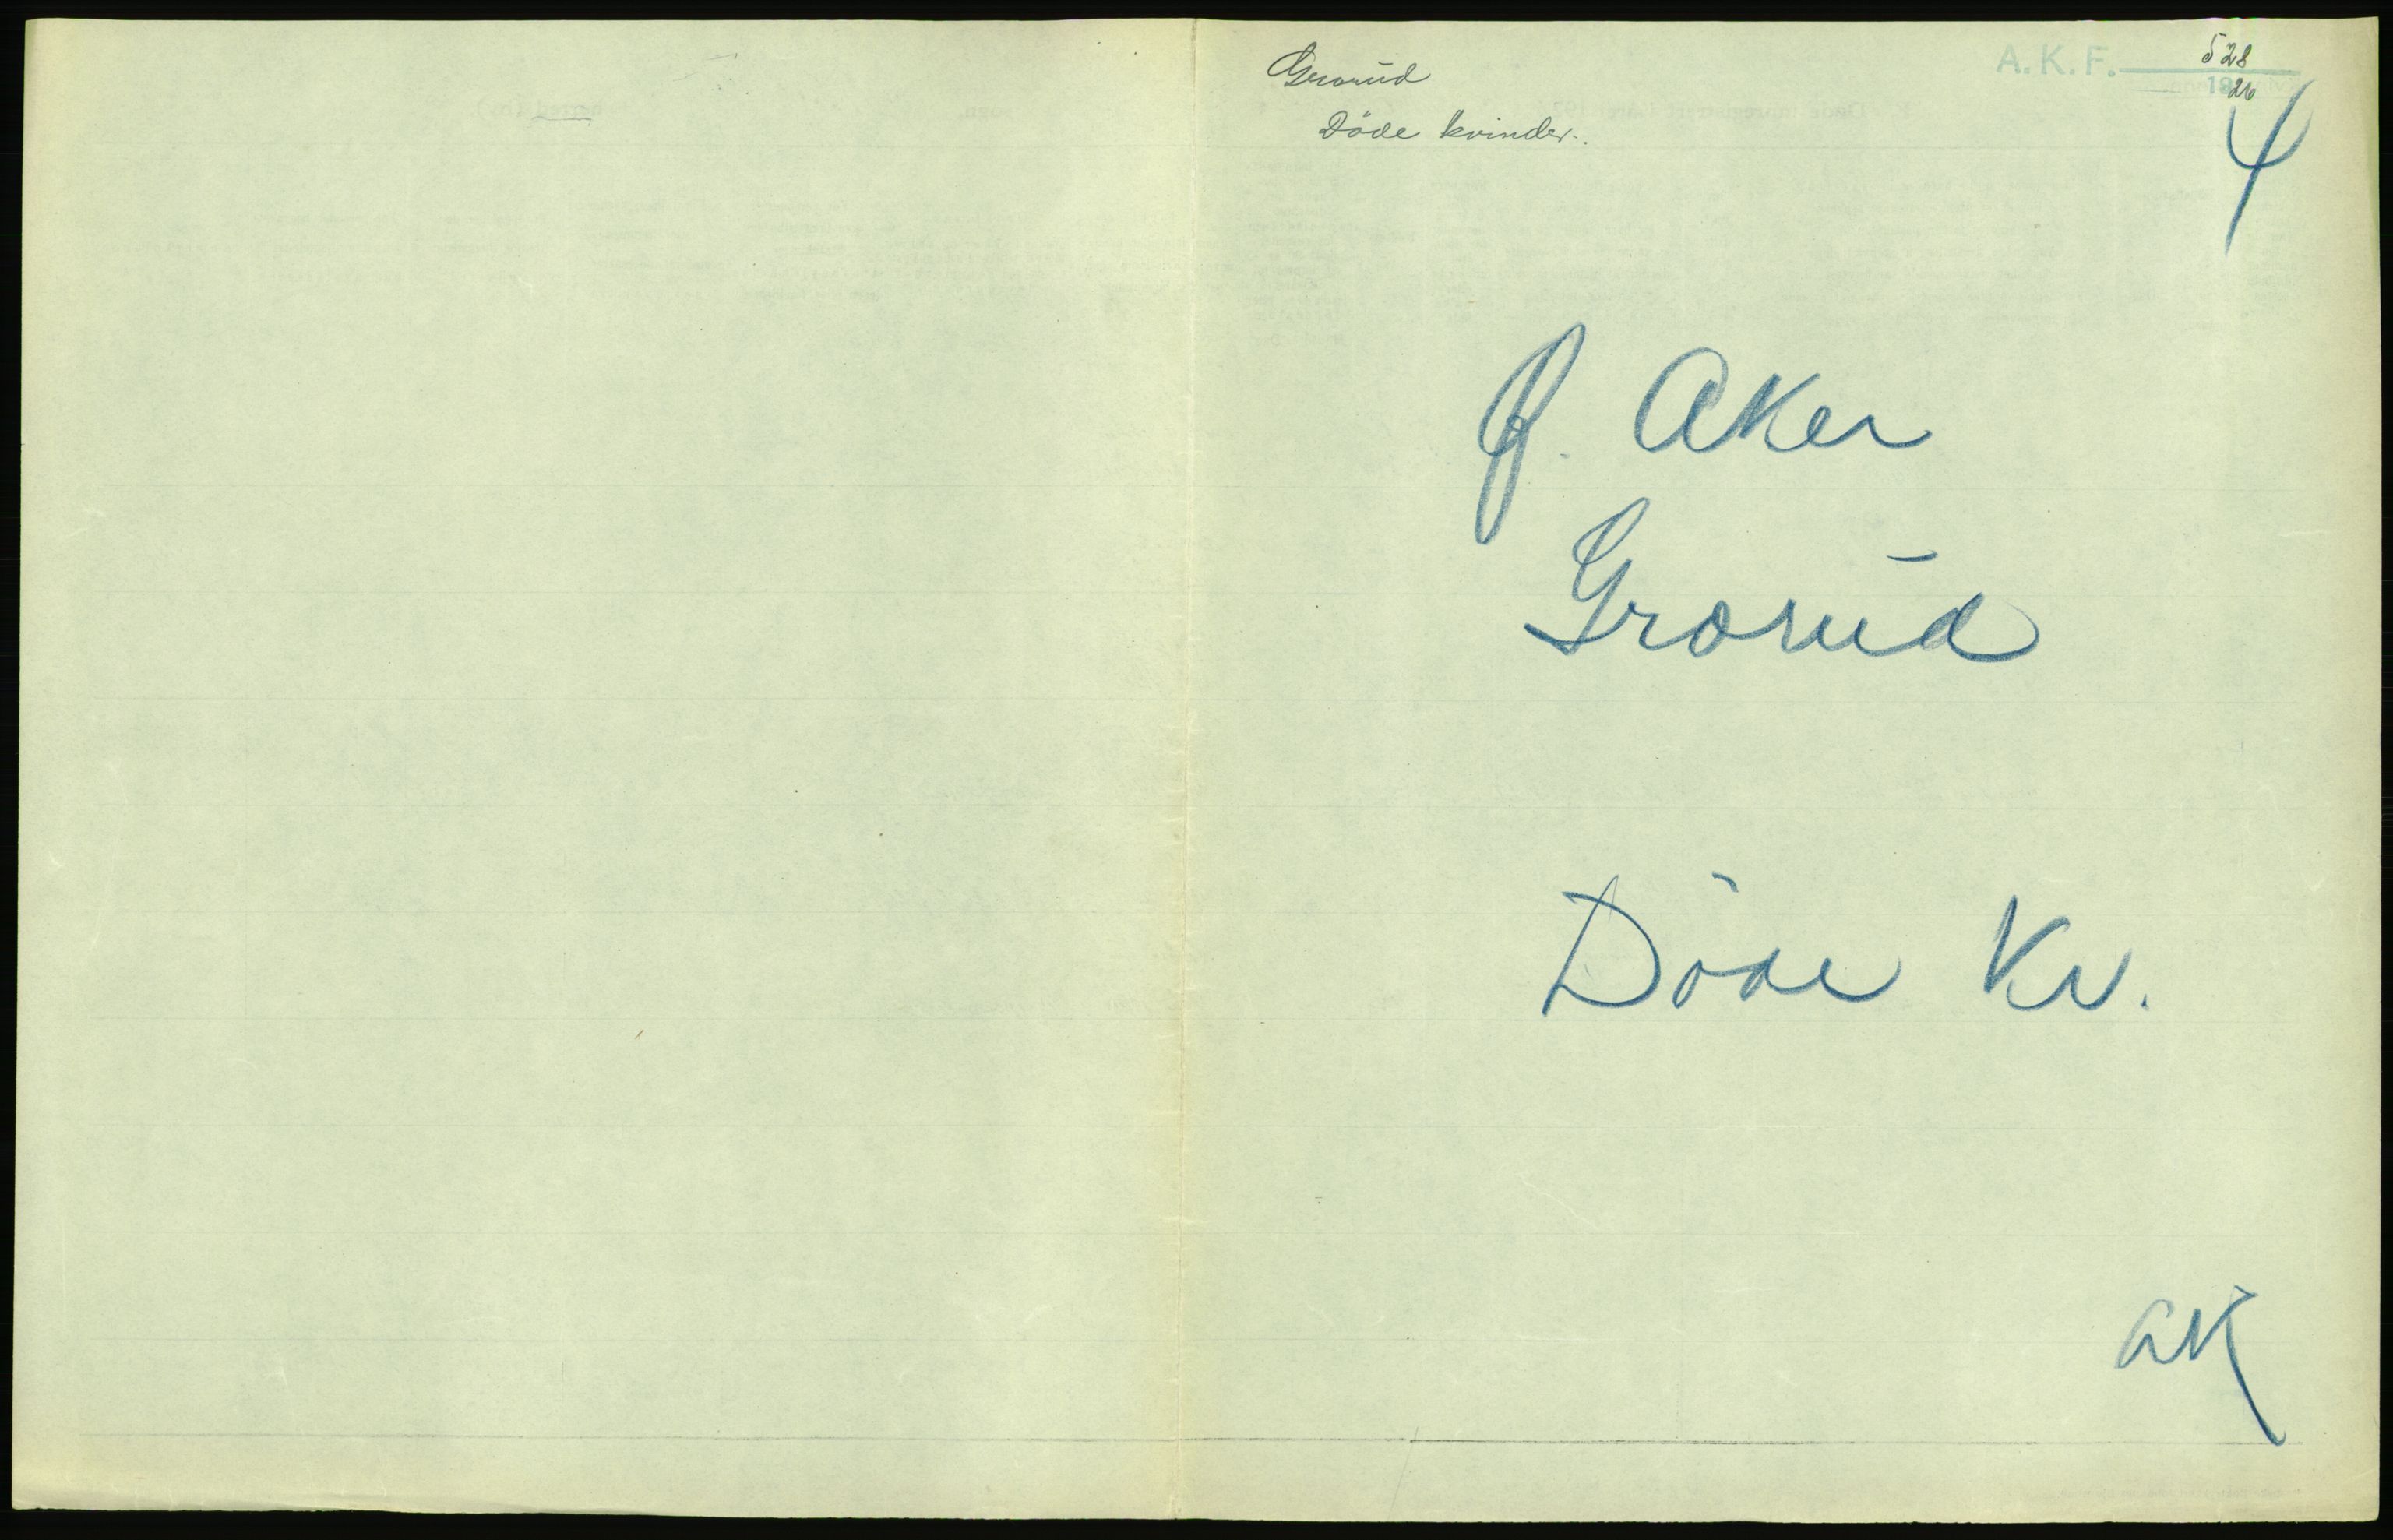 Grorud
Döde kvinder.
A.K.F. 528
1926
4
Ø. Aker
Grorud
Döde Kv.
AK